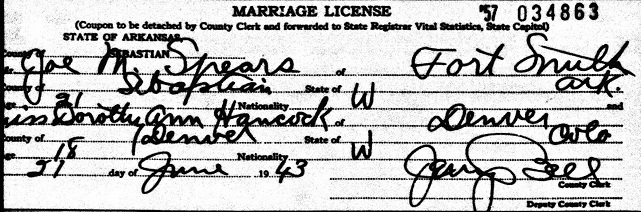 MARRIAGE LICENSE '57 034863
(Coupon to be detached by County Clerk and forwarded to State Registrar Vital Statistics, State Capitol)
STATE OF ARKANSAS,
County of SEBASTIAN
Mr. Joe M. Spears of Fort Smith
County of Sebastian State of Ark.
Age 21 Nationality W and
Miss Dorothy Ann Hancock of Denver
County of Denver State of Colo
Age 18 Nationality W
21 day of June 1943 Jerry Bell
County Clerk
Deputy County Clerk